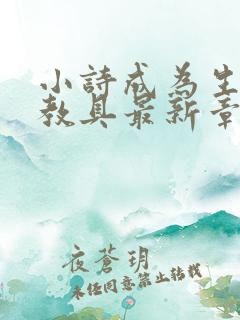 小詩成為生
教具最新章
夜蒼玥
未經同意禁止轉載